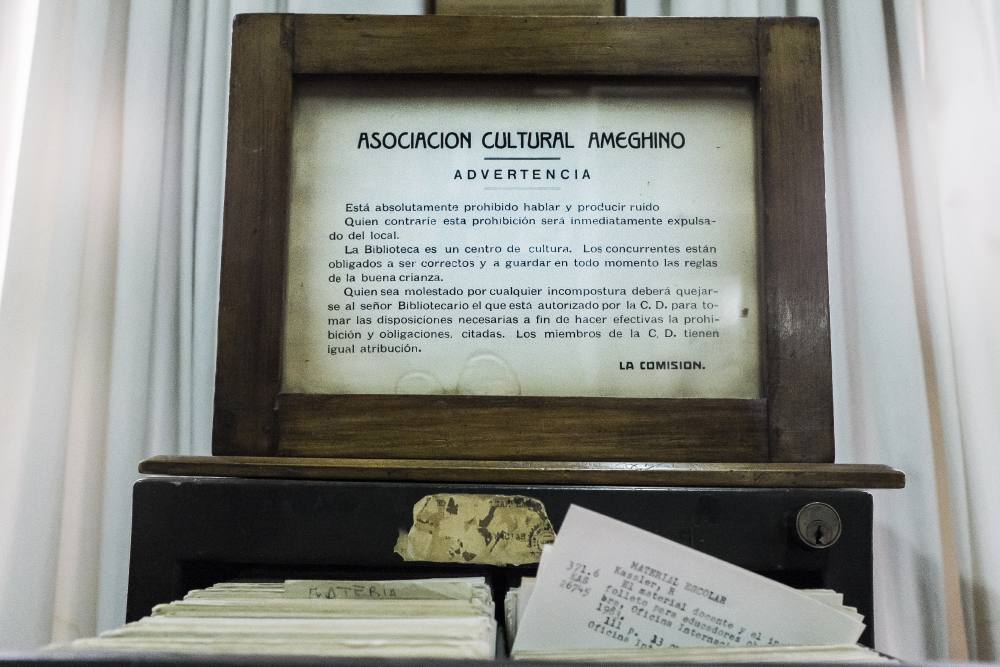 ASOCIACION CULTURAL AMEGHINO
ADVERTENCIA
Está absolutamente prohibido hablar y producir ruido
Quien contrarie esta prohibición será inmediatamente expulsa-
do del local.
La Biblioteca es un centro de cultura. Los concurrentes están
obligados a ser correctos y a guardar en todo momento las reglas
de la buena crianza.
Quien sea molestado por cualquier incompostura deberá quejar-
se al señor Bibliotecario el que está autorizado por la C. D. para to-
mar las disposiciones necesarias a fin de hacer efectivas la prohi-
bición y obligaciones. citadas. Los miembros de la C. D. tienen
igual atribución.
LA COMISION.
MATERIA
MATERIAL ESCOLAR
371.6 Kassler, R
KAS El material docente y el
26745 folleto para educadores
bra, Oficina
1983.
111 p. 13
Oficina